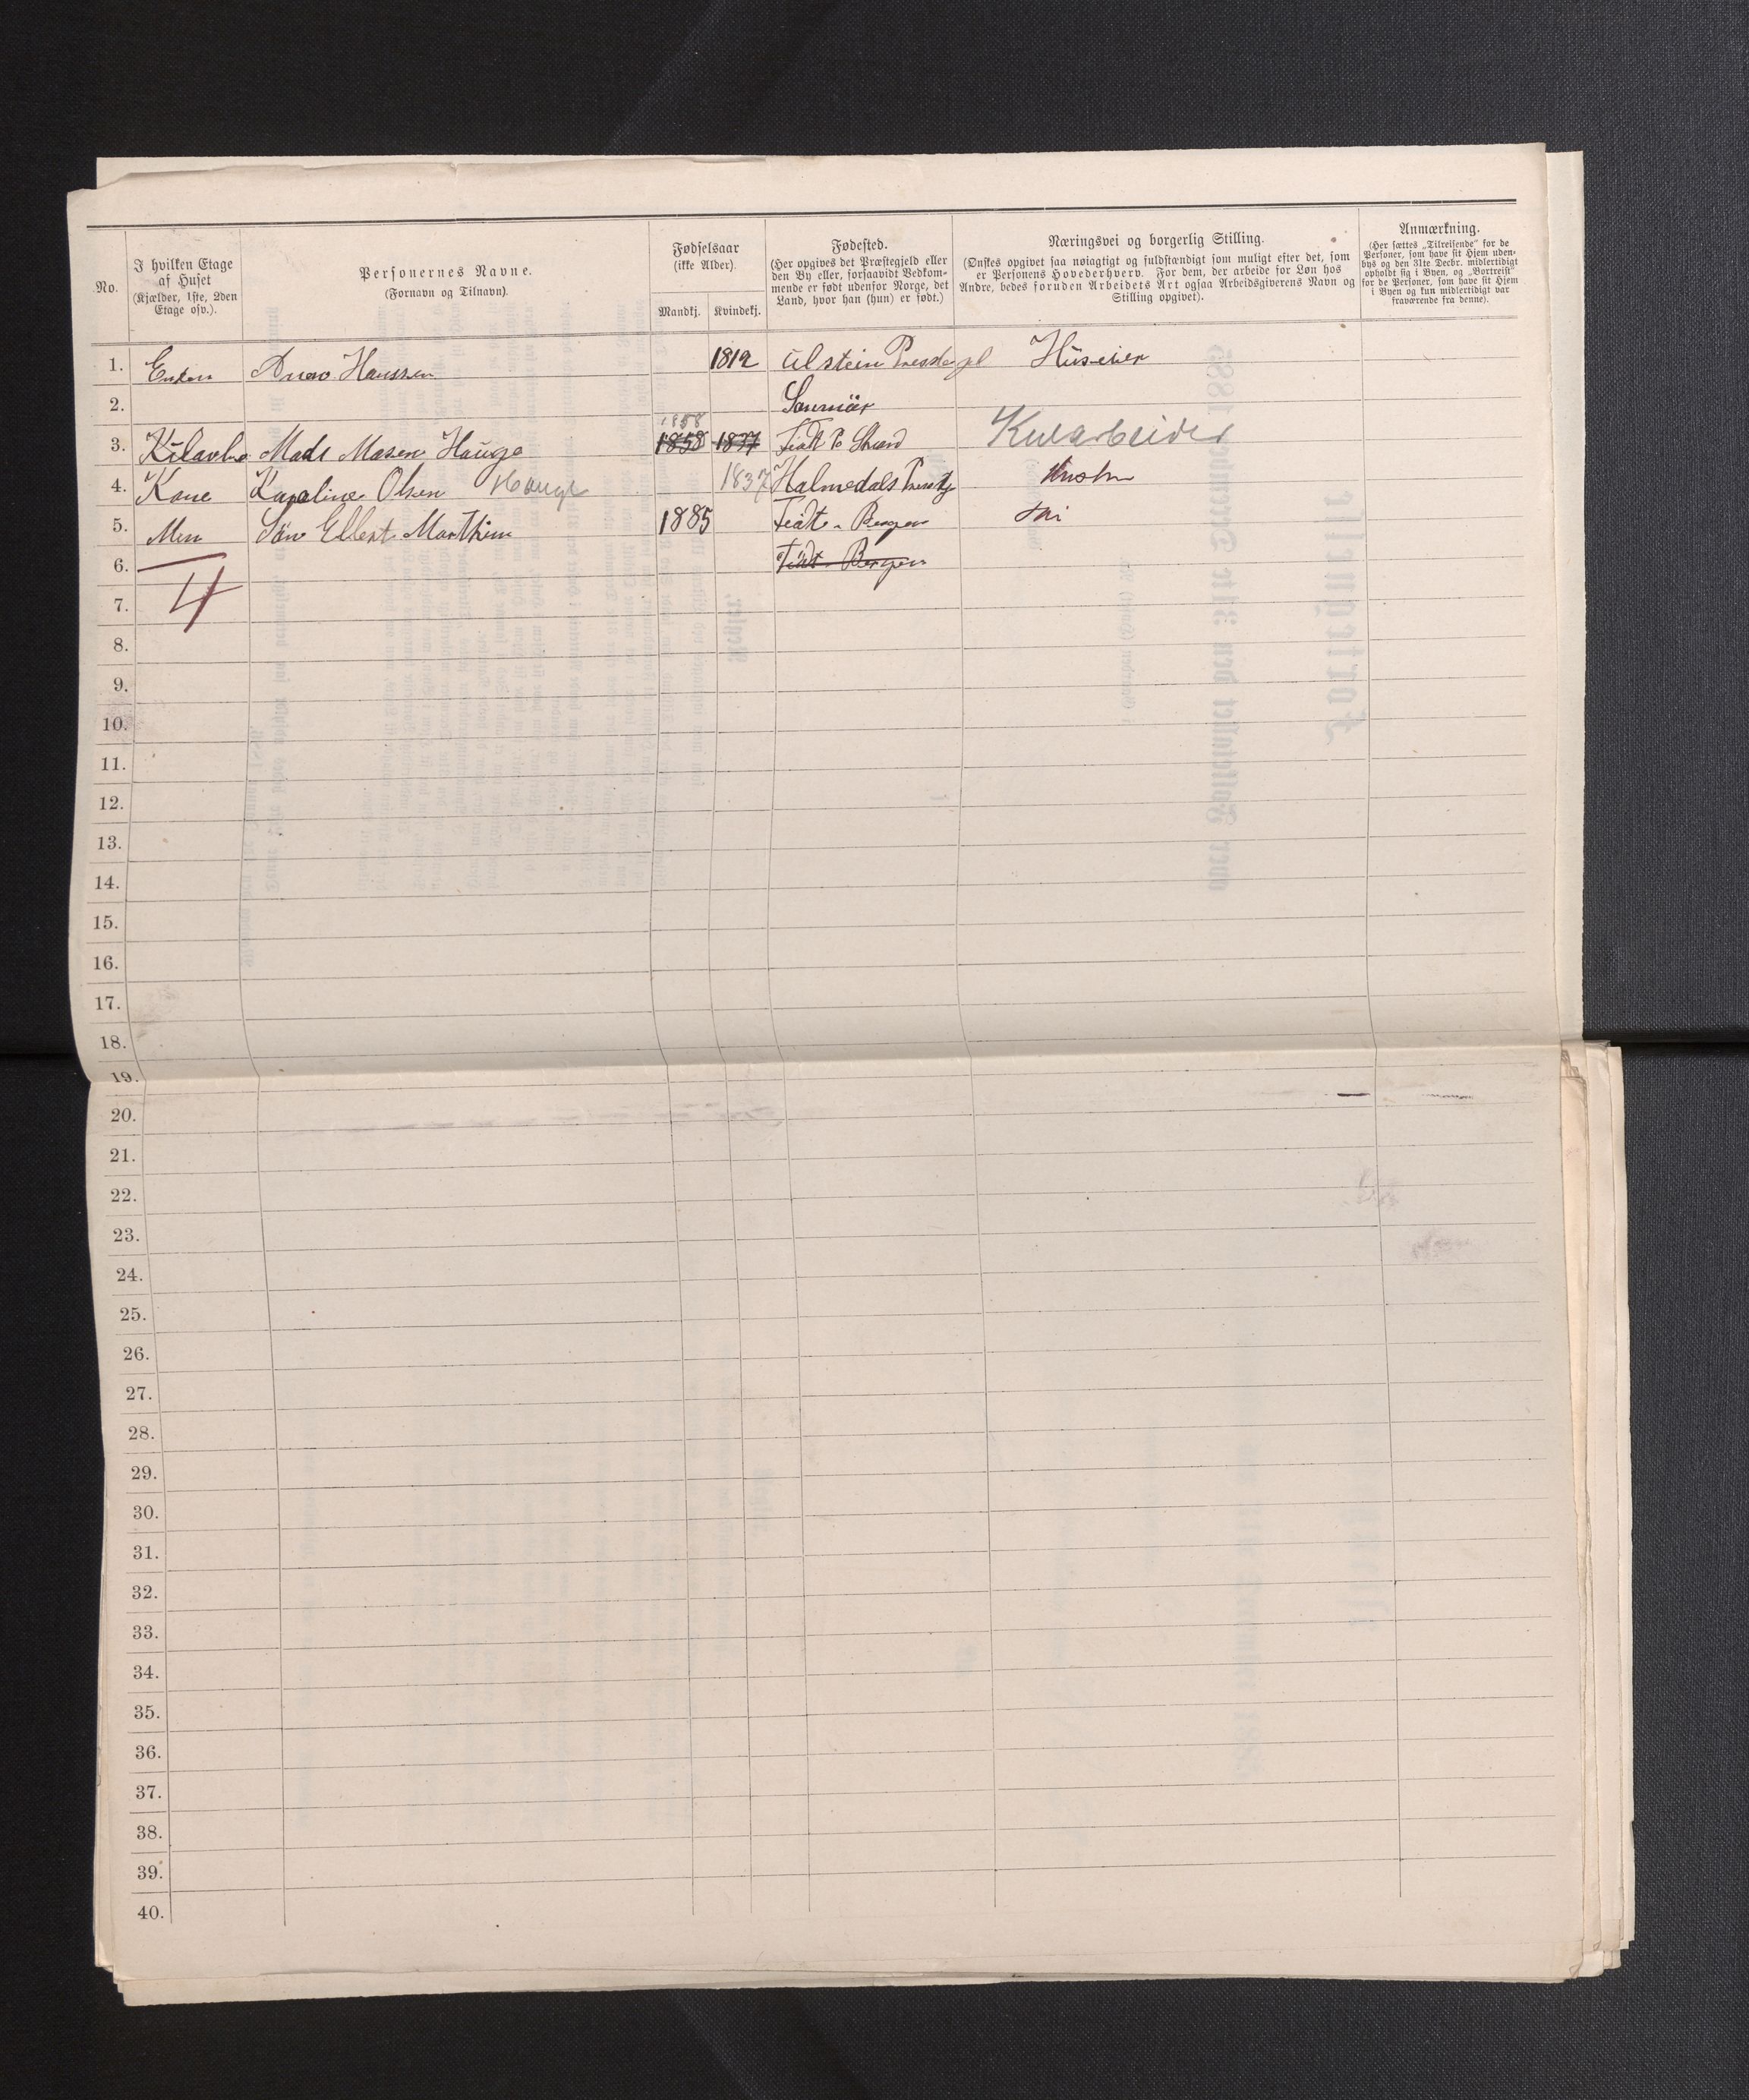 No.
I hvilken Etage
af Huset
(Kjælder, 1ste, 2den
Etage osv.).
Personernes Navne.
(Fornavn og Tilnavn).
Fødselsaar
(ikke Alder).
Mandkj. Kvindekj.
Fødested.
(Her opgives det Præstegjeld eller
den By eller, forsaavidt Vedkom-
mende er født udenfor Norge, det
Land, hvor han (hun) er født.)
Næringsvei og borgerlig Stilling.
(Ønskes opgivet saa nøiagtigt og fuldstændigt som muligt efter det, som
er Personens Hovederhverv. For dem, der arbeide for Løn hos
Andre, bedes foruden Arbeidets Art ogsaa Arbeidsgiverens Navn og
Stilling opgivet).
Anmærkning.
(Her sættes „Tilreisende" for de
Personer, som have sit Hjem uden-
bys og den 31te Decbr. midlertidigt
opholdt sig i Byen, og „Bortreist"
for de Personer, som have sit Hjem
i Byen og kun midlertidigt var
fraværende fra denne).
1. Hanssen 1812 Ulstein Huseier
2. Sønmör
1858
3. Mads Masen Hauge 1858 1837 Strand
4. Kone Karoline Olsen Hauge 1837
5. Sön Ellert Marthin 1885 Bergen
6. Födt Bergen
4
7.
8.
9.
10.
11.
12.
13.
14.
15.
16.
17.
18.
19.
20.
21.
22.
23.
24.
25.
26.
27.
28.
29.
30.
31.
32.
33.
34.
35.
36.
37.
38.
39.
40.